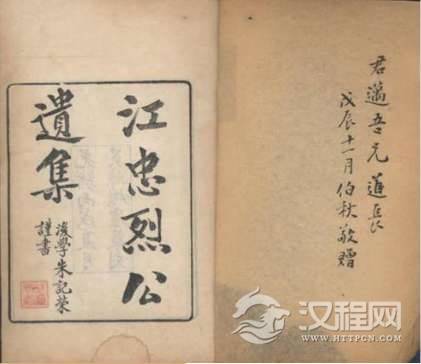 君邁吾兄道長
戊辰十一月伯秋敬贈
江忠烈公
遺集
後學朱記榮
謹書
汉程网
HTTPCN.COM